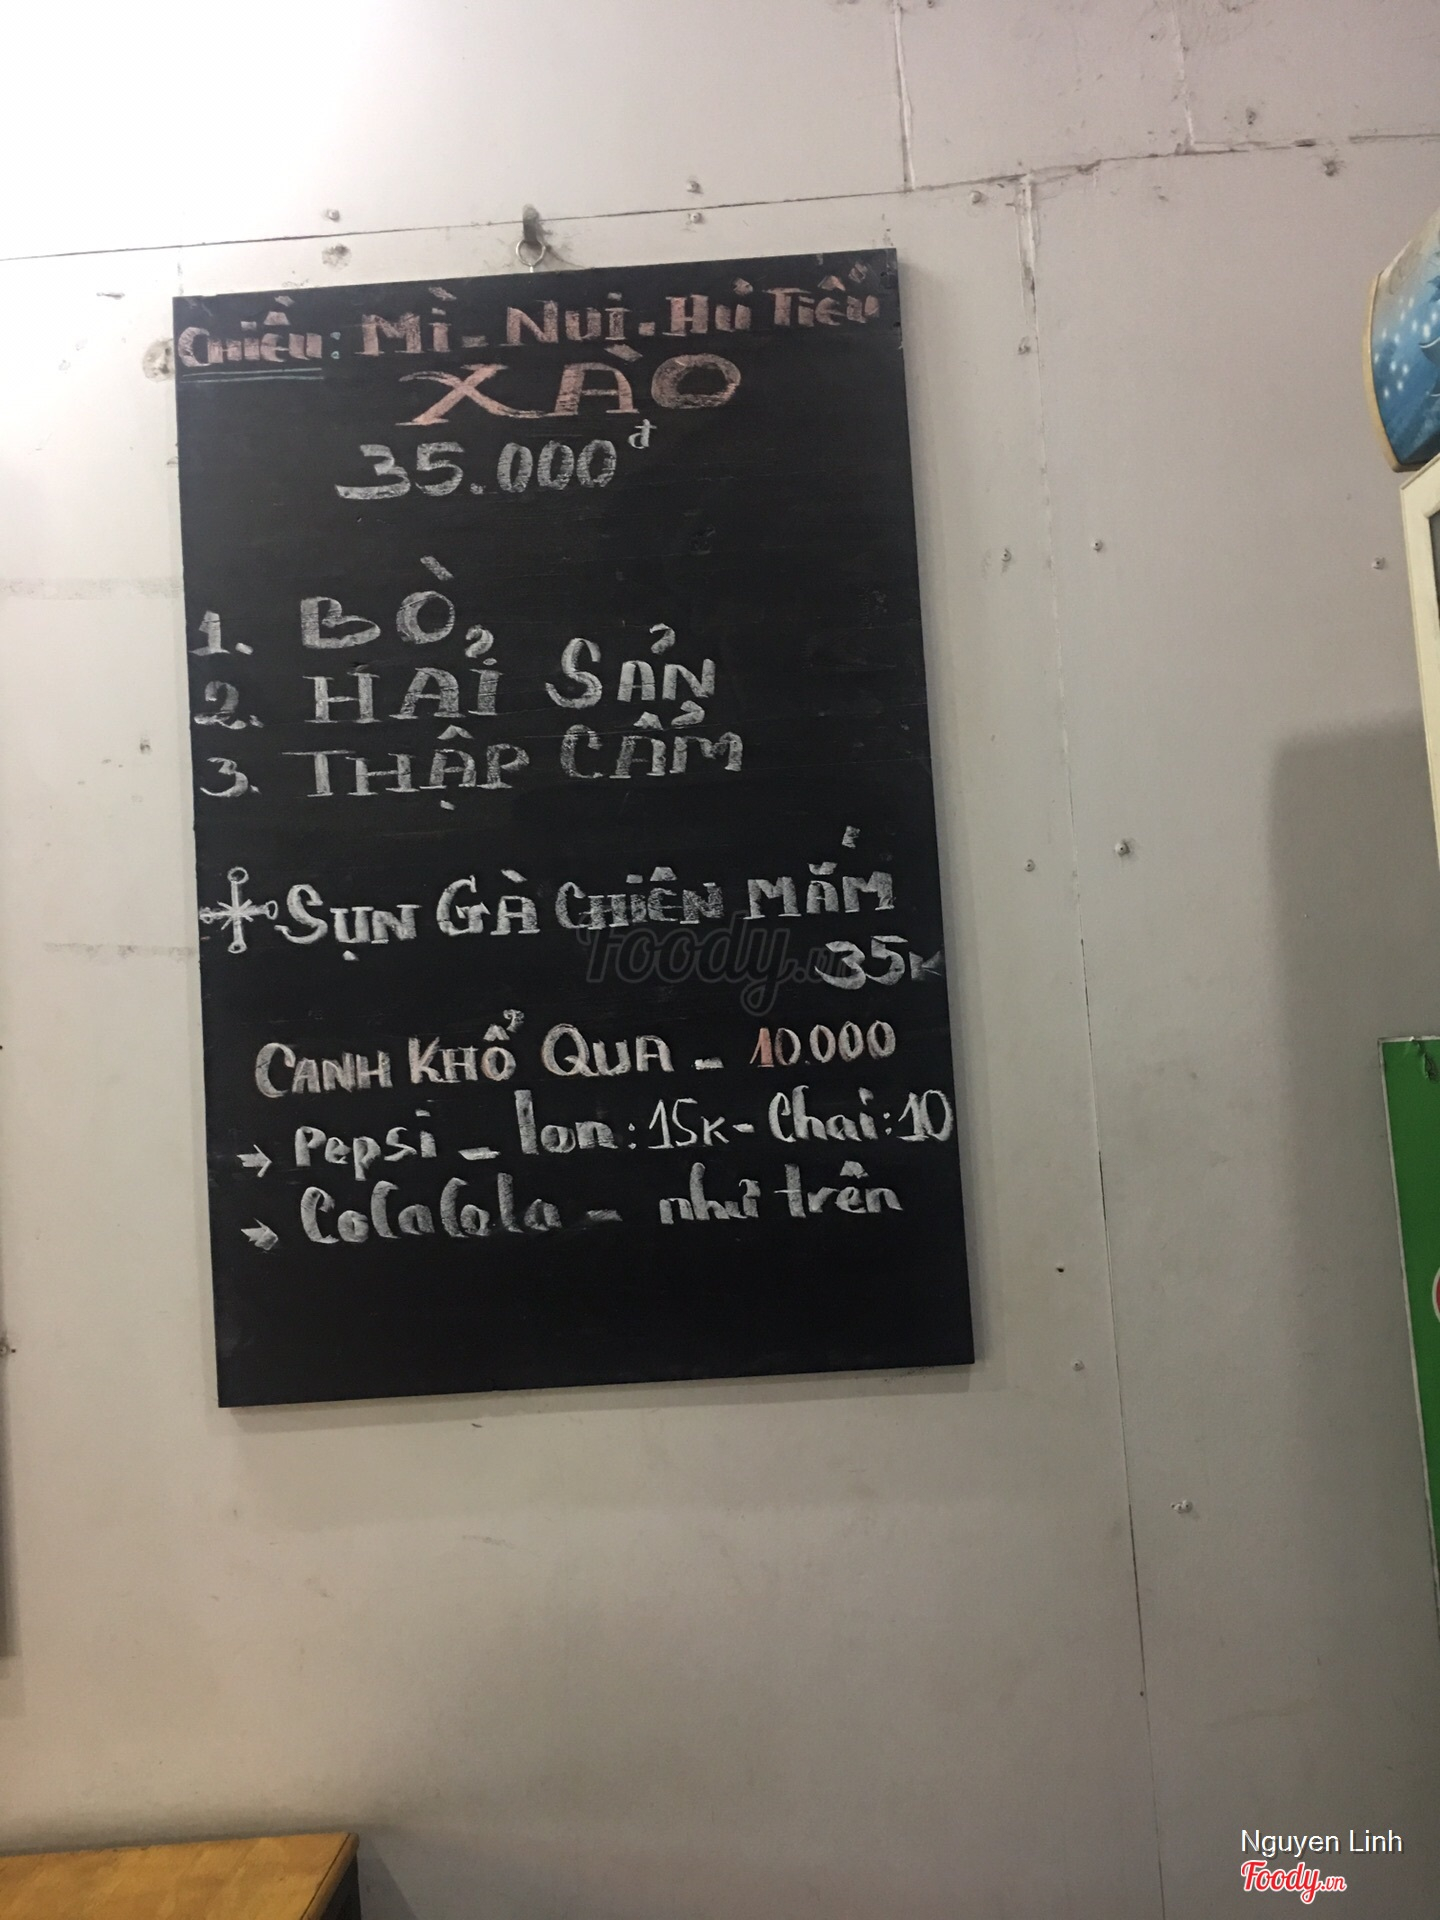 Chiều: Mì - Nui - Hủ Tiếu
XÀO
35.000đ
1. BÒ
2. HẢI SẢN
3. THẬP CẨM
SỤN GÀ CHIÊN MẮM
35K
CANH KHỔ QUA - 10.000
→ Pepsi - lon: 15K - Chai: 10
→ CoCaCola - như trên
Foody.vn
Nguyen Linh
Foody.vn